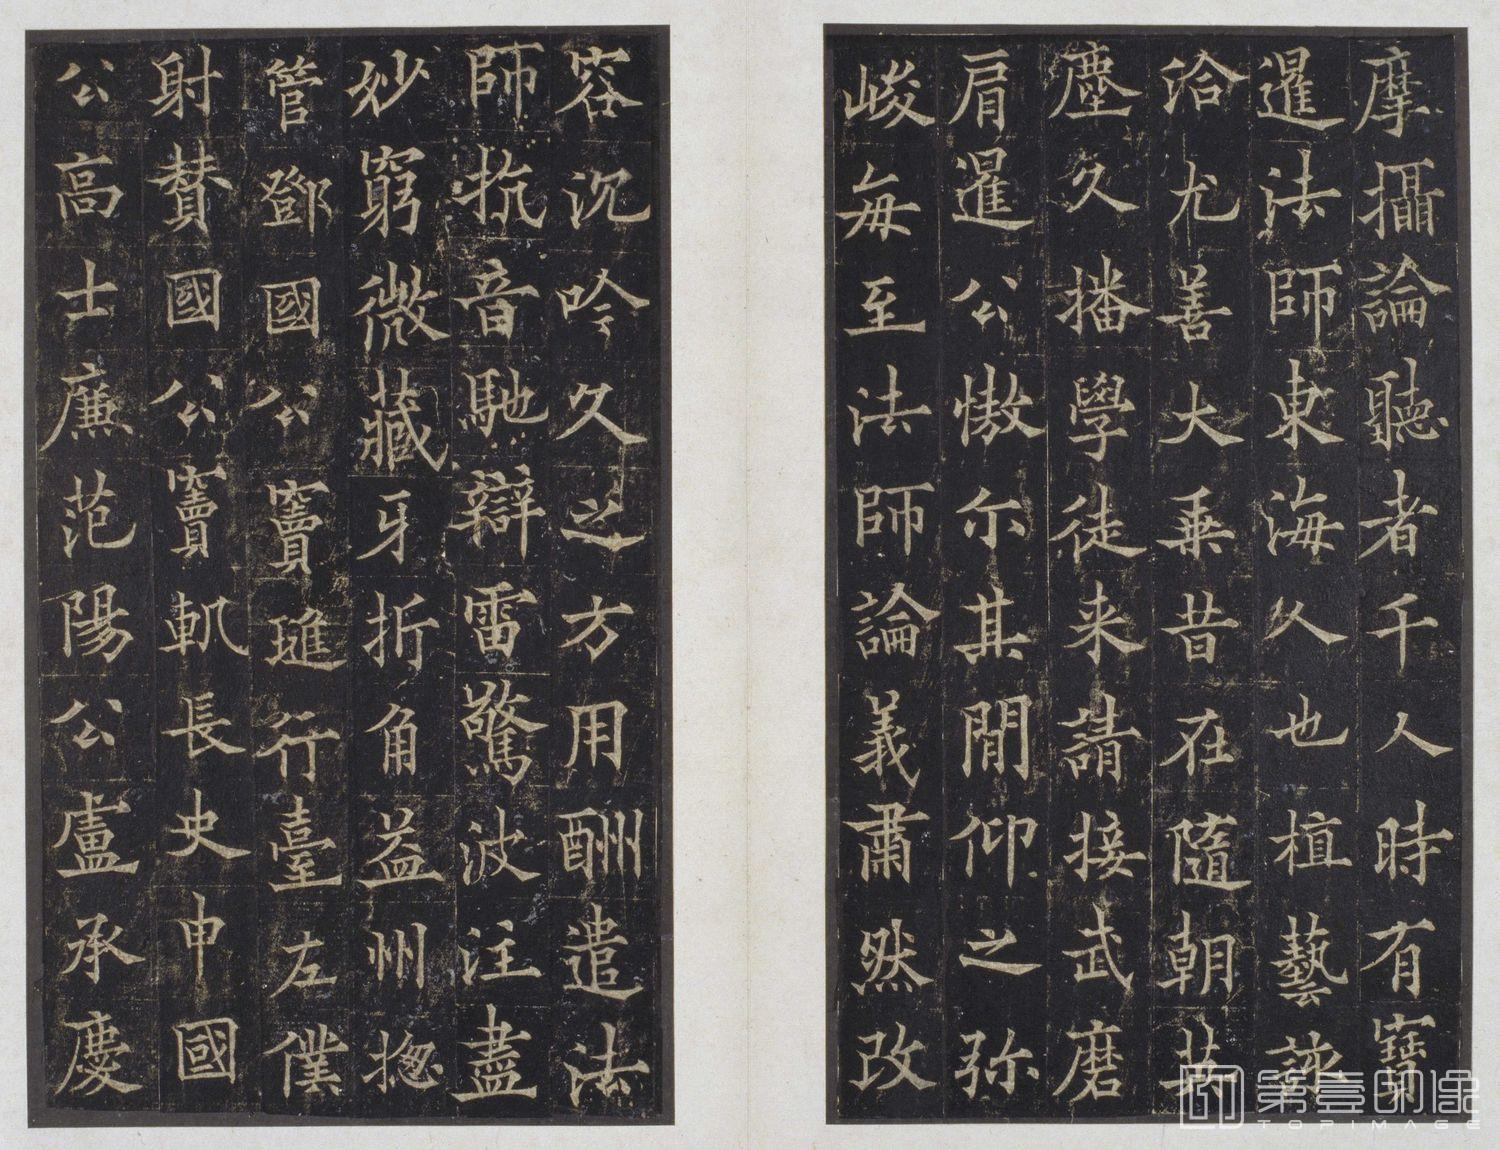 摩攝論聽者千人時有寶
暹法師東海人也植藝該
洽尤善大乗昔在隨朝英
塵久播學徒来請接武磨
肩暹公慠尒其間仰之弥
峻每至法師論義肅然改
容沉吟久之方用酬遣法
師抗音馳辯雷驚波注盡
妙窮微藏牙折角益州揔
管鄧國公竇璡行臺左僕
射贊國公竇軌長史申國
公高士廉范陽公盧承慶
第壹印像
TOPIMAGE